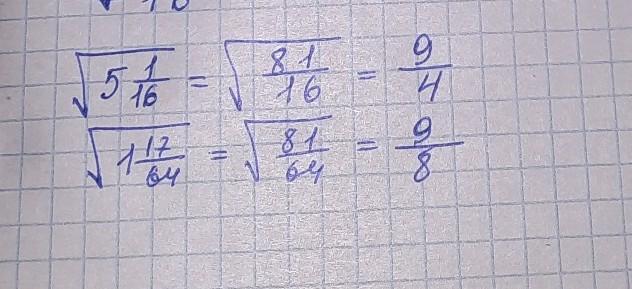 √(5 1/16) = √(81/16) = 9/4
√(1 17/64) = √(81/64) = 9/8